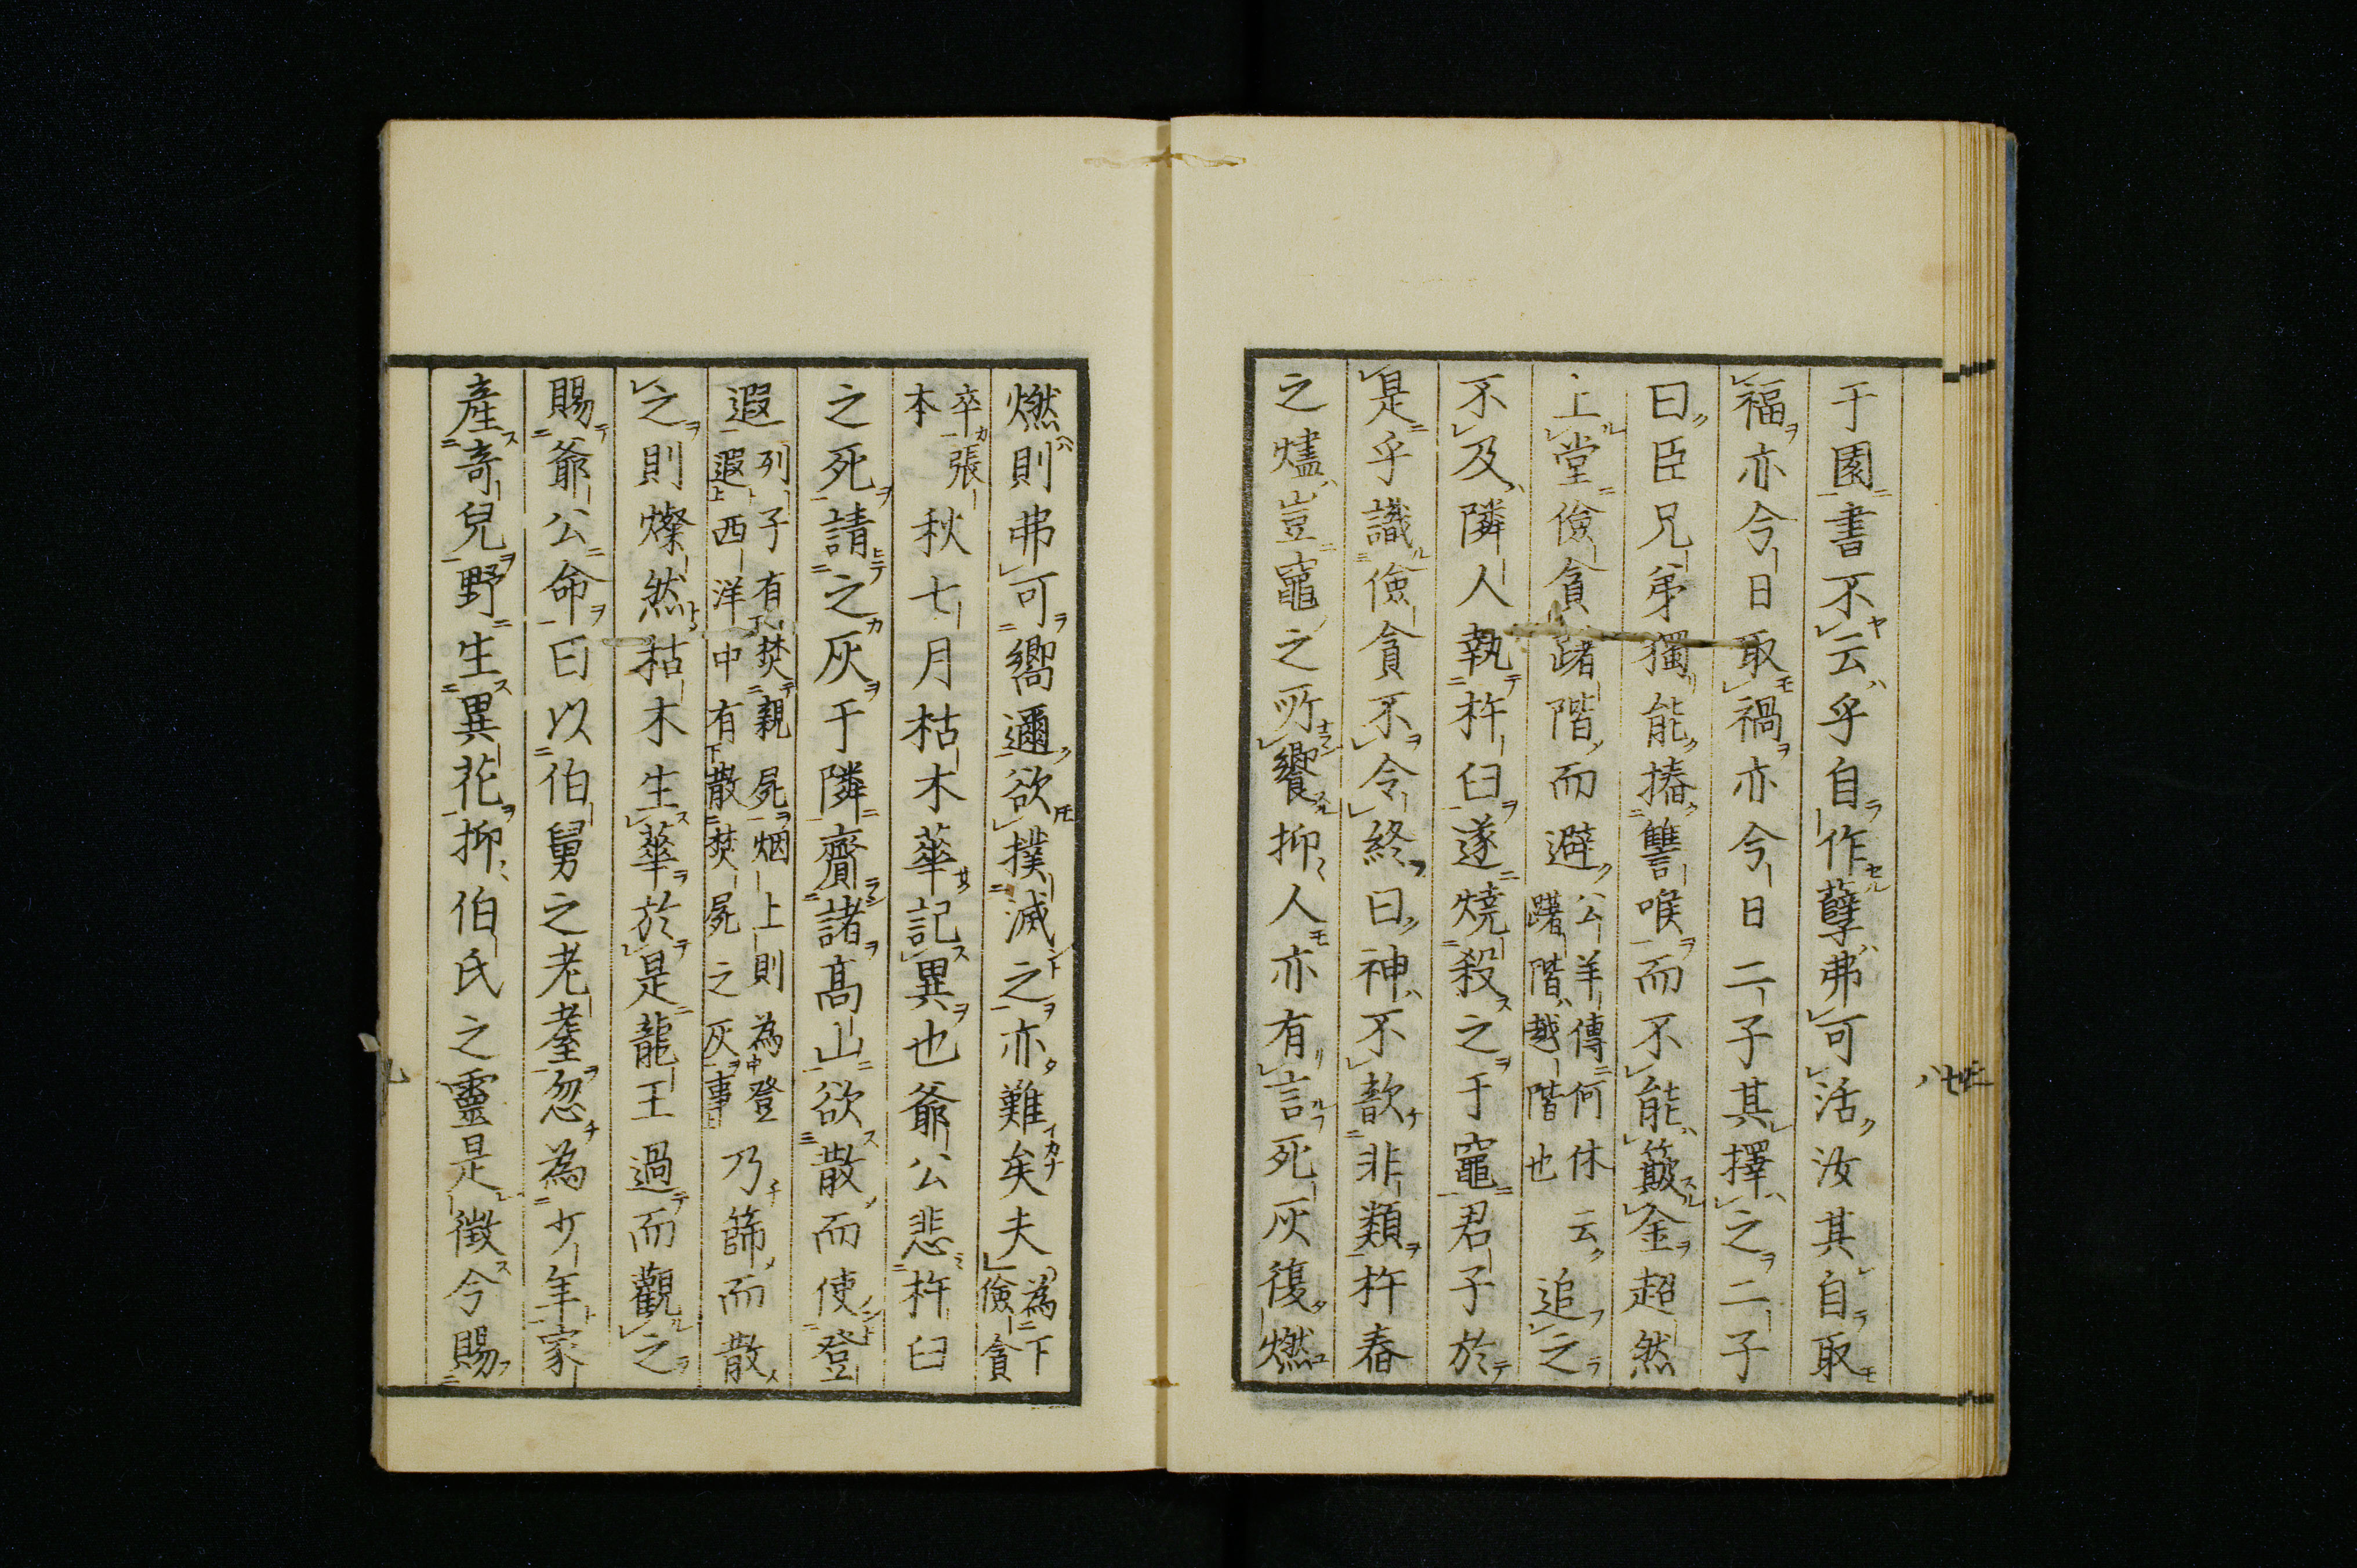 于園書不云乎自作孽弗可活汝其自取
福亦今日取禍亦今日二子其擇之二子
曰臣兄弟獨能摏讐喉而不能簸金超然
上堂儉貪躇階而避公羊傳何休云躇階越階也追之
不及隣人執杵臼遂燒殺之于竈君子於
是乎識儉貪不令終曰神不歆非類杵舂
之燼豈竈之所饗抑人亦有言死灰復燃
燃則弗可嚮邇欲撲滅之亦難矣夫為下儉貪
卒張本秋七月枯木華記異也爺公悲杵臼
之死請之灰于隣齎諸高山欲散而使登
遐列子有焚親屍烟上則為登遐西洋中有散焚屍之灰事乃篩而散
之則燦然枯木生華於是龍王過而觀之
賜爺公命曰以伯舅之老耋忽為少年家
產奇兒野生異花抑伯氏之靈是徵今賜